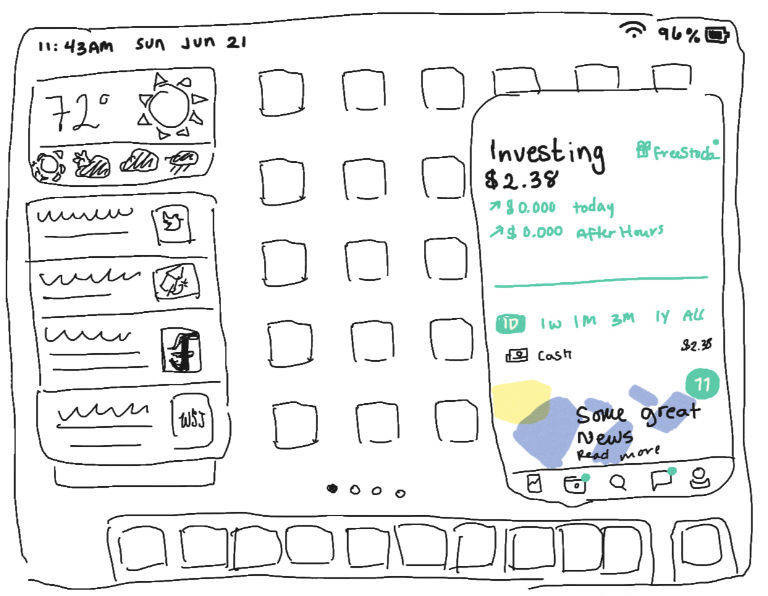 11:43AM Sun Jun 21
96%
72°
Investing
$2.38
FreeStock
↗$0.000 Today
↗$0.000 After Hours
1D 1W 1M 3M 1Y ALL
Cash $2.38
11
Some great
News
Read more
WSJ